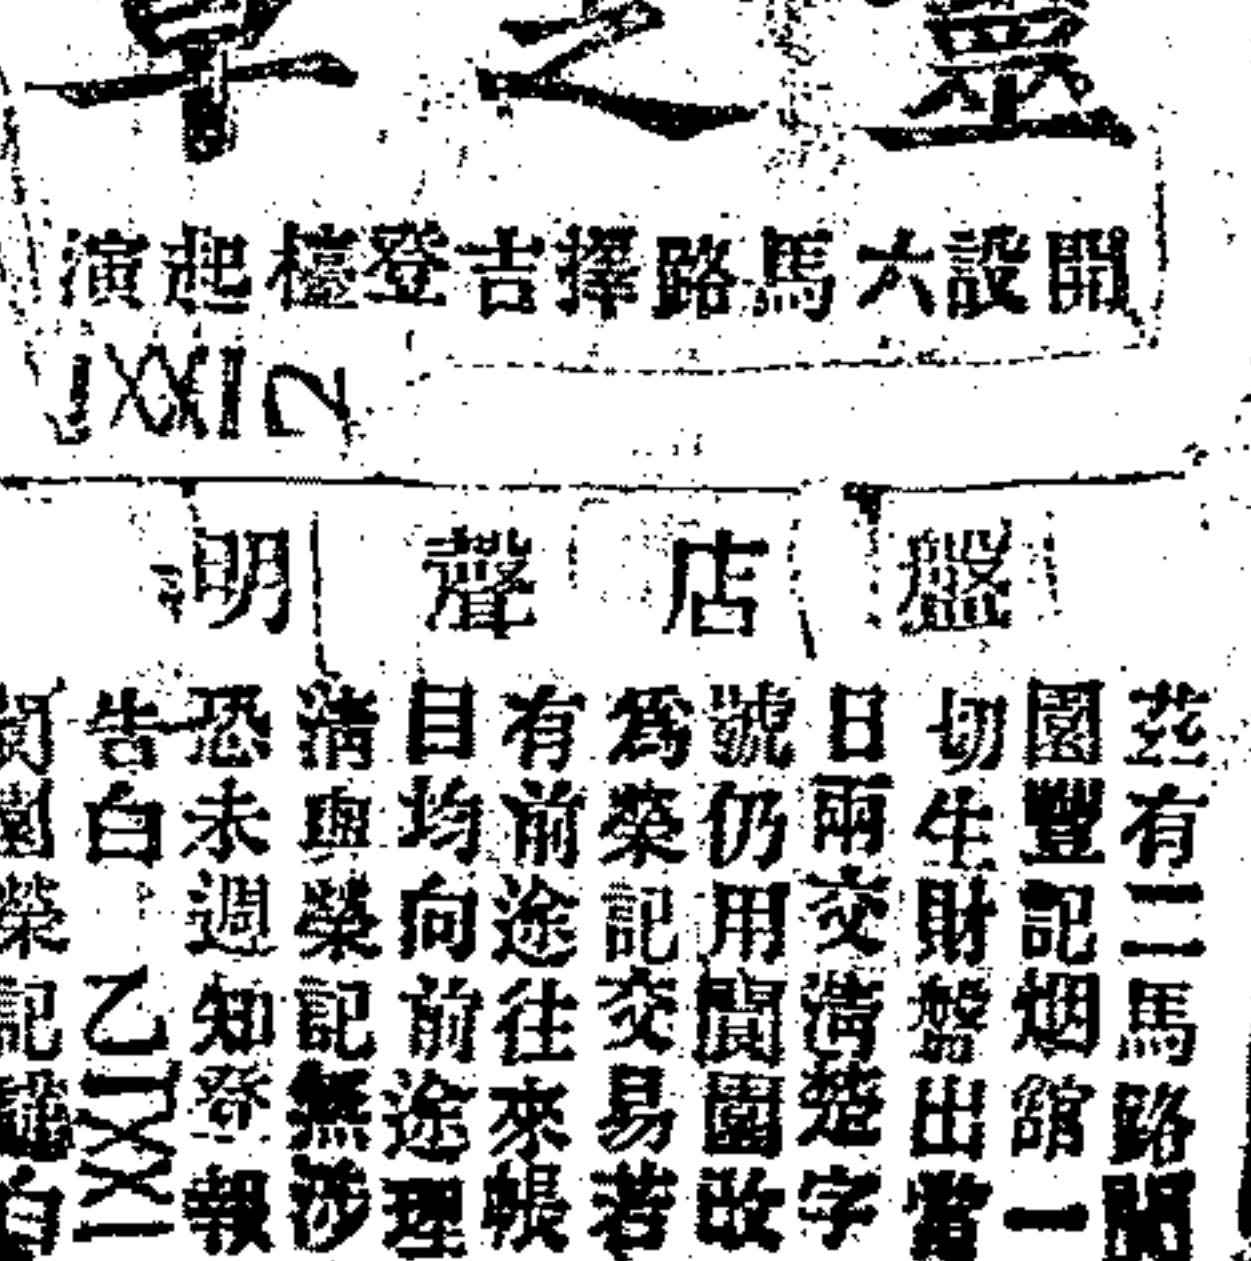 靈之草
開設六馬路擇吉登檯起演
盤店聲明
茲有二馬路閬
園豐記烟館一
切生財盤出當
日兩交清楚字
號仍用閬園改
爲榮記交易若
有前途往來帳
目均向前途理
清與榮記無涉
恐未週知登報
告白 乙
閬園榮記謹白